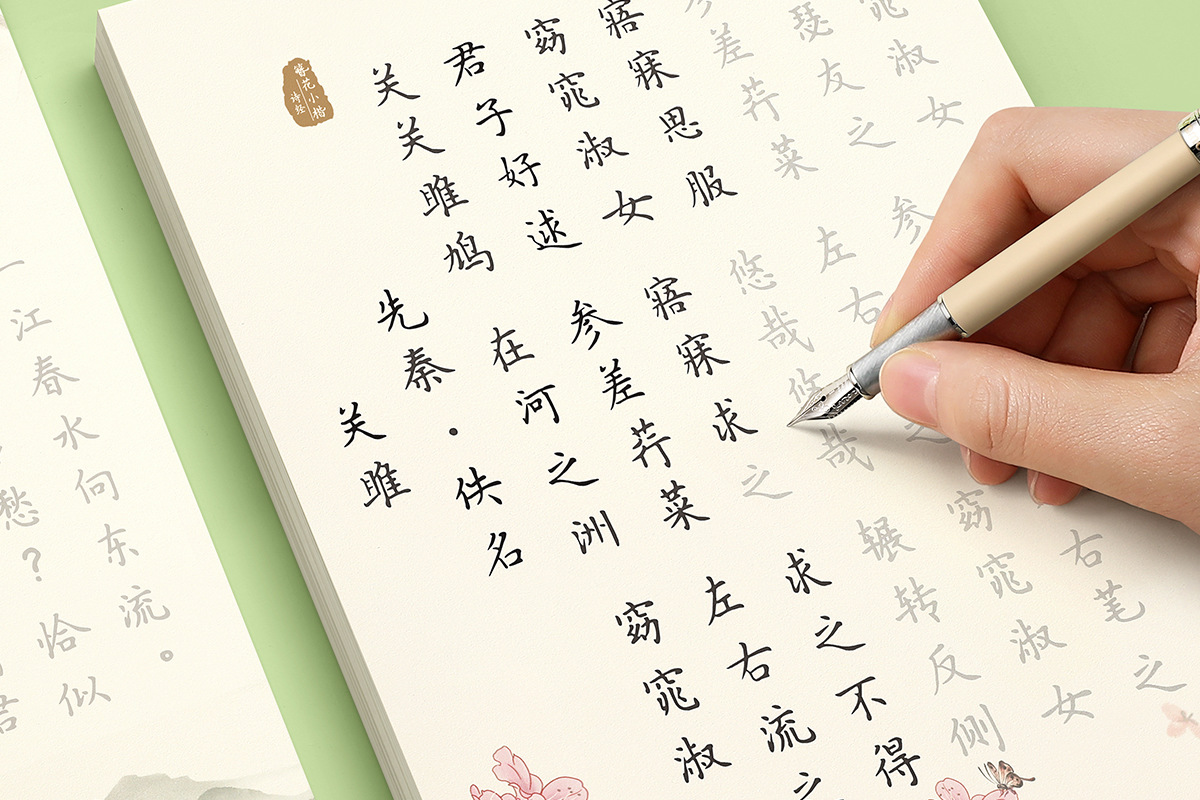 愁？恰似
一江春水向东流。
簪花小楷
诗经
关雎
先秦·佚名
关关雎鸠 在河之洲 窈窕淑
君子好逑 参差荇菜 左右流之
窈窕淑女 寤寐求之 求之不得
寤寐思服 悠哉悠哉 辗转反侧
参差荇菜 左右 之 窈窕淑女
瑟友之 参 右笔之
窕淑女